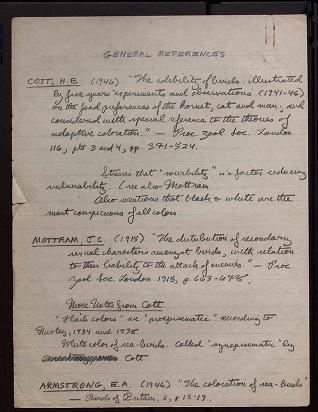 GENERAL REFERENCES
COTT, H.B. (1946) "The edibility of birds: illustrated
by five years' experiments and observations (1941-46)
on the food preferences of the hornet, cat and man; and
considered with special reference to the theories of
adaptive coloration." — Proc. Zool. Soc. London
116, pts 3 and 4, pp. 371-524.
Stresses that "sociability" is a factor reducing
vulnerability. (See also Mottram
Also mentions that black & white are the
most conspicuous of all colors.
MOTTRAM, J.C. (1915) "The distribution of secondary
sexual characters amongst birds, with relation
to their liability to the attack of enemies." — Proc
Zool. Soc. London 1915, p. 663-678.
More Notes from Cott.
"Flash colors" are "proepisematic" according to
Huxley, 1934 and 1938
White color of sea-birds. Called "synepisematic" by
Cott
ARMSTRONG, E.A. (1946) "The coloration of sea-birds"
— Birds of Britain, 2, p 15-19.